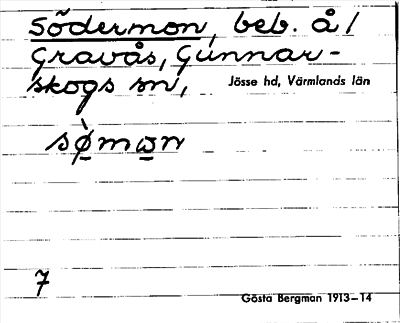 Södermon, beb. å /
Gravås, Gunnar-
skogs sn,
Jösse hd, Värmlands län
sø̀mωn
7
Gösta Bergman 1913–14